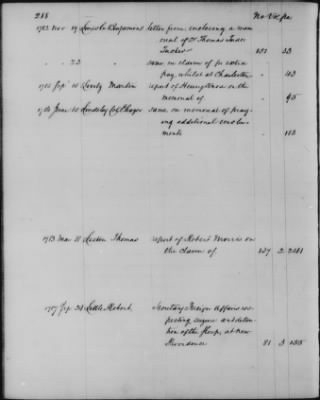 288 No Vol pa
1783 Nov 19 Lincoln Benjamin letter from enclosing a mem
orial of Dr Thomas Tudor
Tucker 151 53
" 23 same on claim of for extra
pay, whilst at Charleston " 103
1785 Sep 10 Lently Martin report of Henry Knox on the
memorial of " 95
1786 June 10 Lindsley same on memorial of pray
ing additional emolu
ments " 113
1783 Mar 11 Thomas report of Robert Morris on
the claim of 137 2 2251
1787 Sep 24 Little Robert Secretary Foreign Affairs res
pecting seizure and deten
tion of the Sloop, at New
Providence 81 3